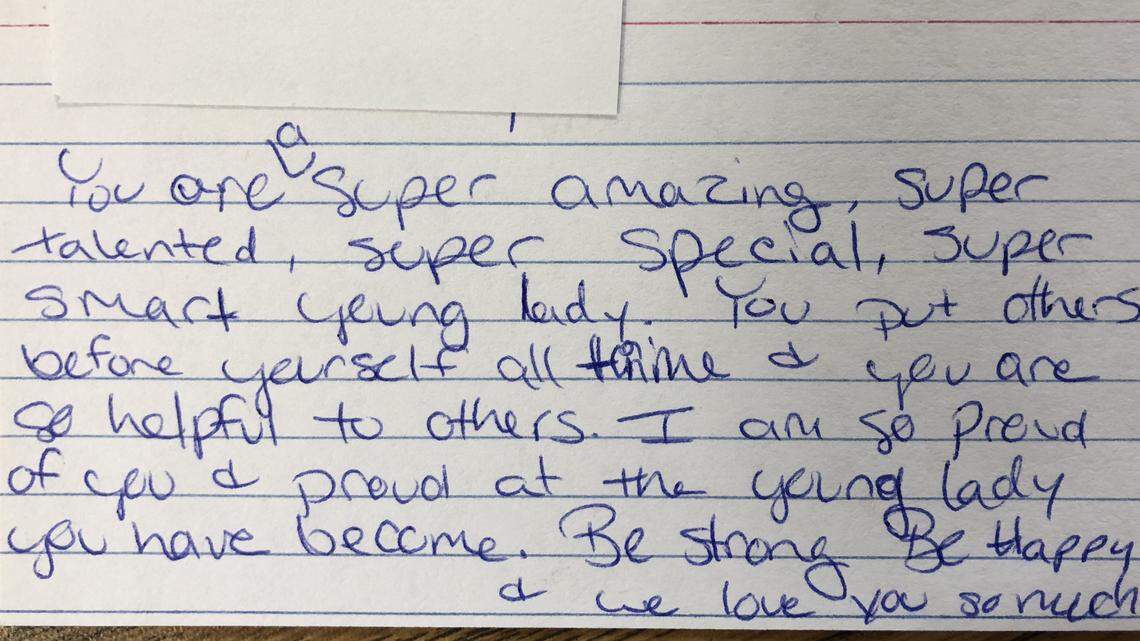 You are a super amazing, super
talented, super special, super
smart young lady. You put others
before yourself all time & you are
so helpful to others. I am so proud
of you & proud at the young lady
you have become. Be strong Be Happy
& we love you so much